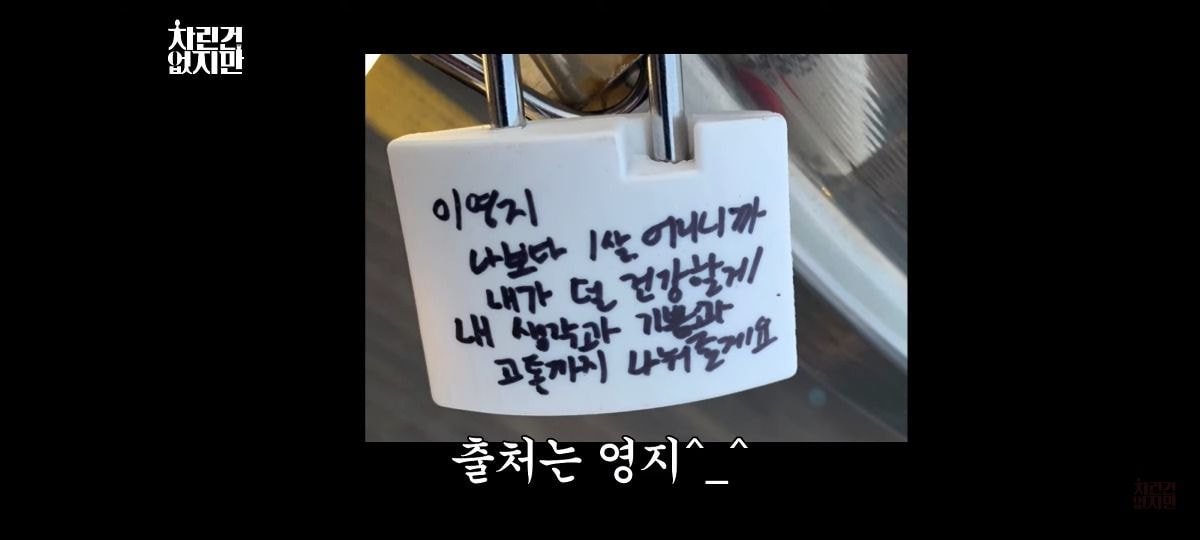 차린건
없지만
이영지
나보다 1살 어리니까
내가 덜 건강할게
내 생각과 기쁨과
고통까지 나눠줄게요
출처는 영지^_^
차린건
없지만